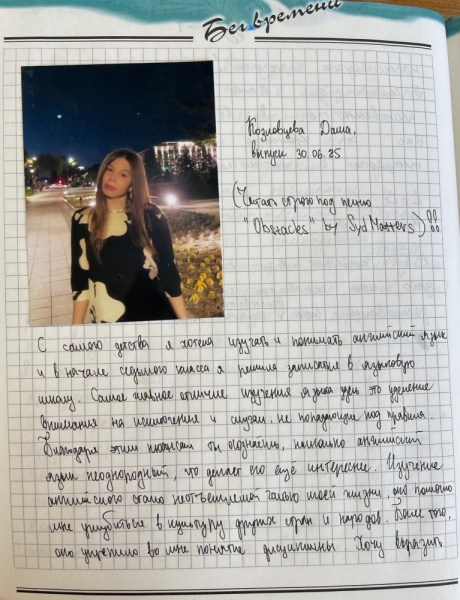 Бег времени
Козловцева Даша,
выпуск 30.06.25
(Читать строго под песню
"Obstacles" by Syd Matters)!!
С самого детства я хотела изучать и понимать английский язык
и в начале седьмого класса я решила записаться в языковую
школу. Самое главное отличие изучения языка здесь это уделение
внимания на исключения и случаи, не попадающие под правила
Благодаря этим нюансам ты осознаешь, насколько английский
язык неоднородный, что делает его ещё интереснее. Изучение
английского стало неотъемлемой частью моей жизни, оно помогло
мне углубиться в культуру других стран и народов. Более того,
оно укрепило во мне понятие дисциплины. Хочу выразить